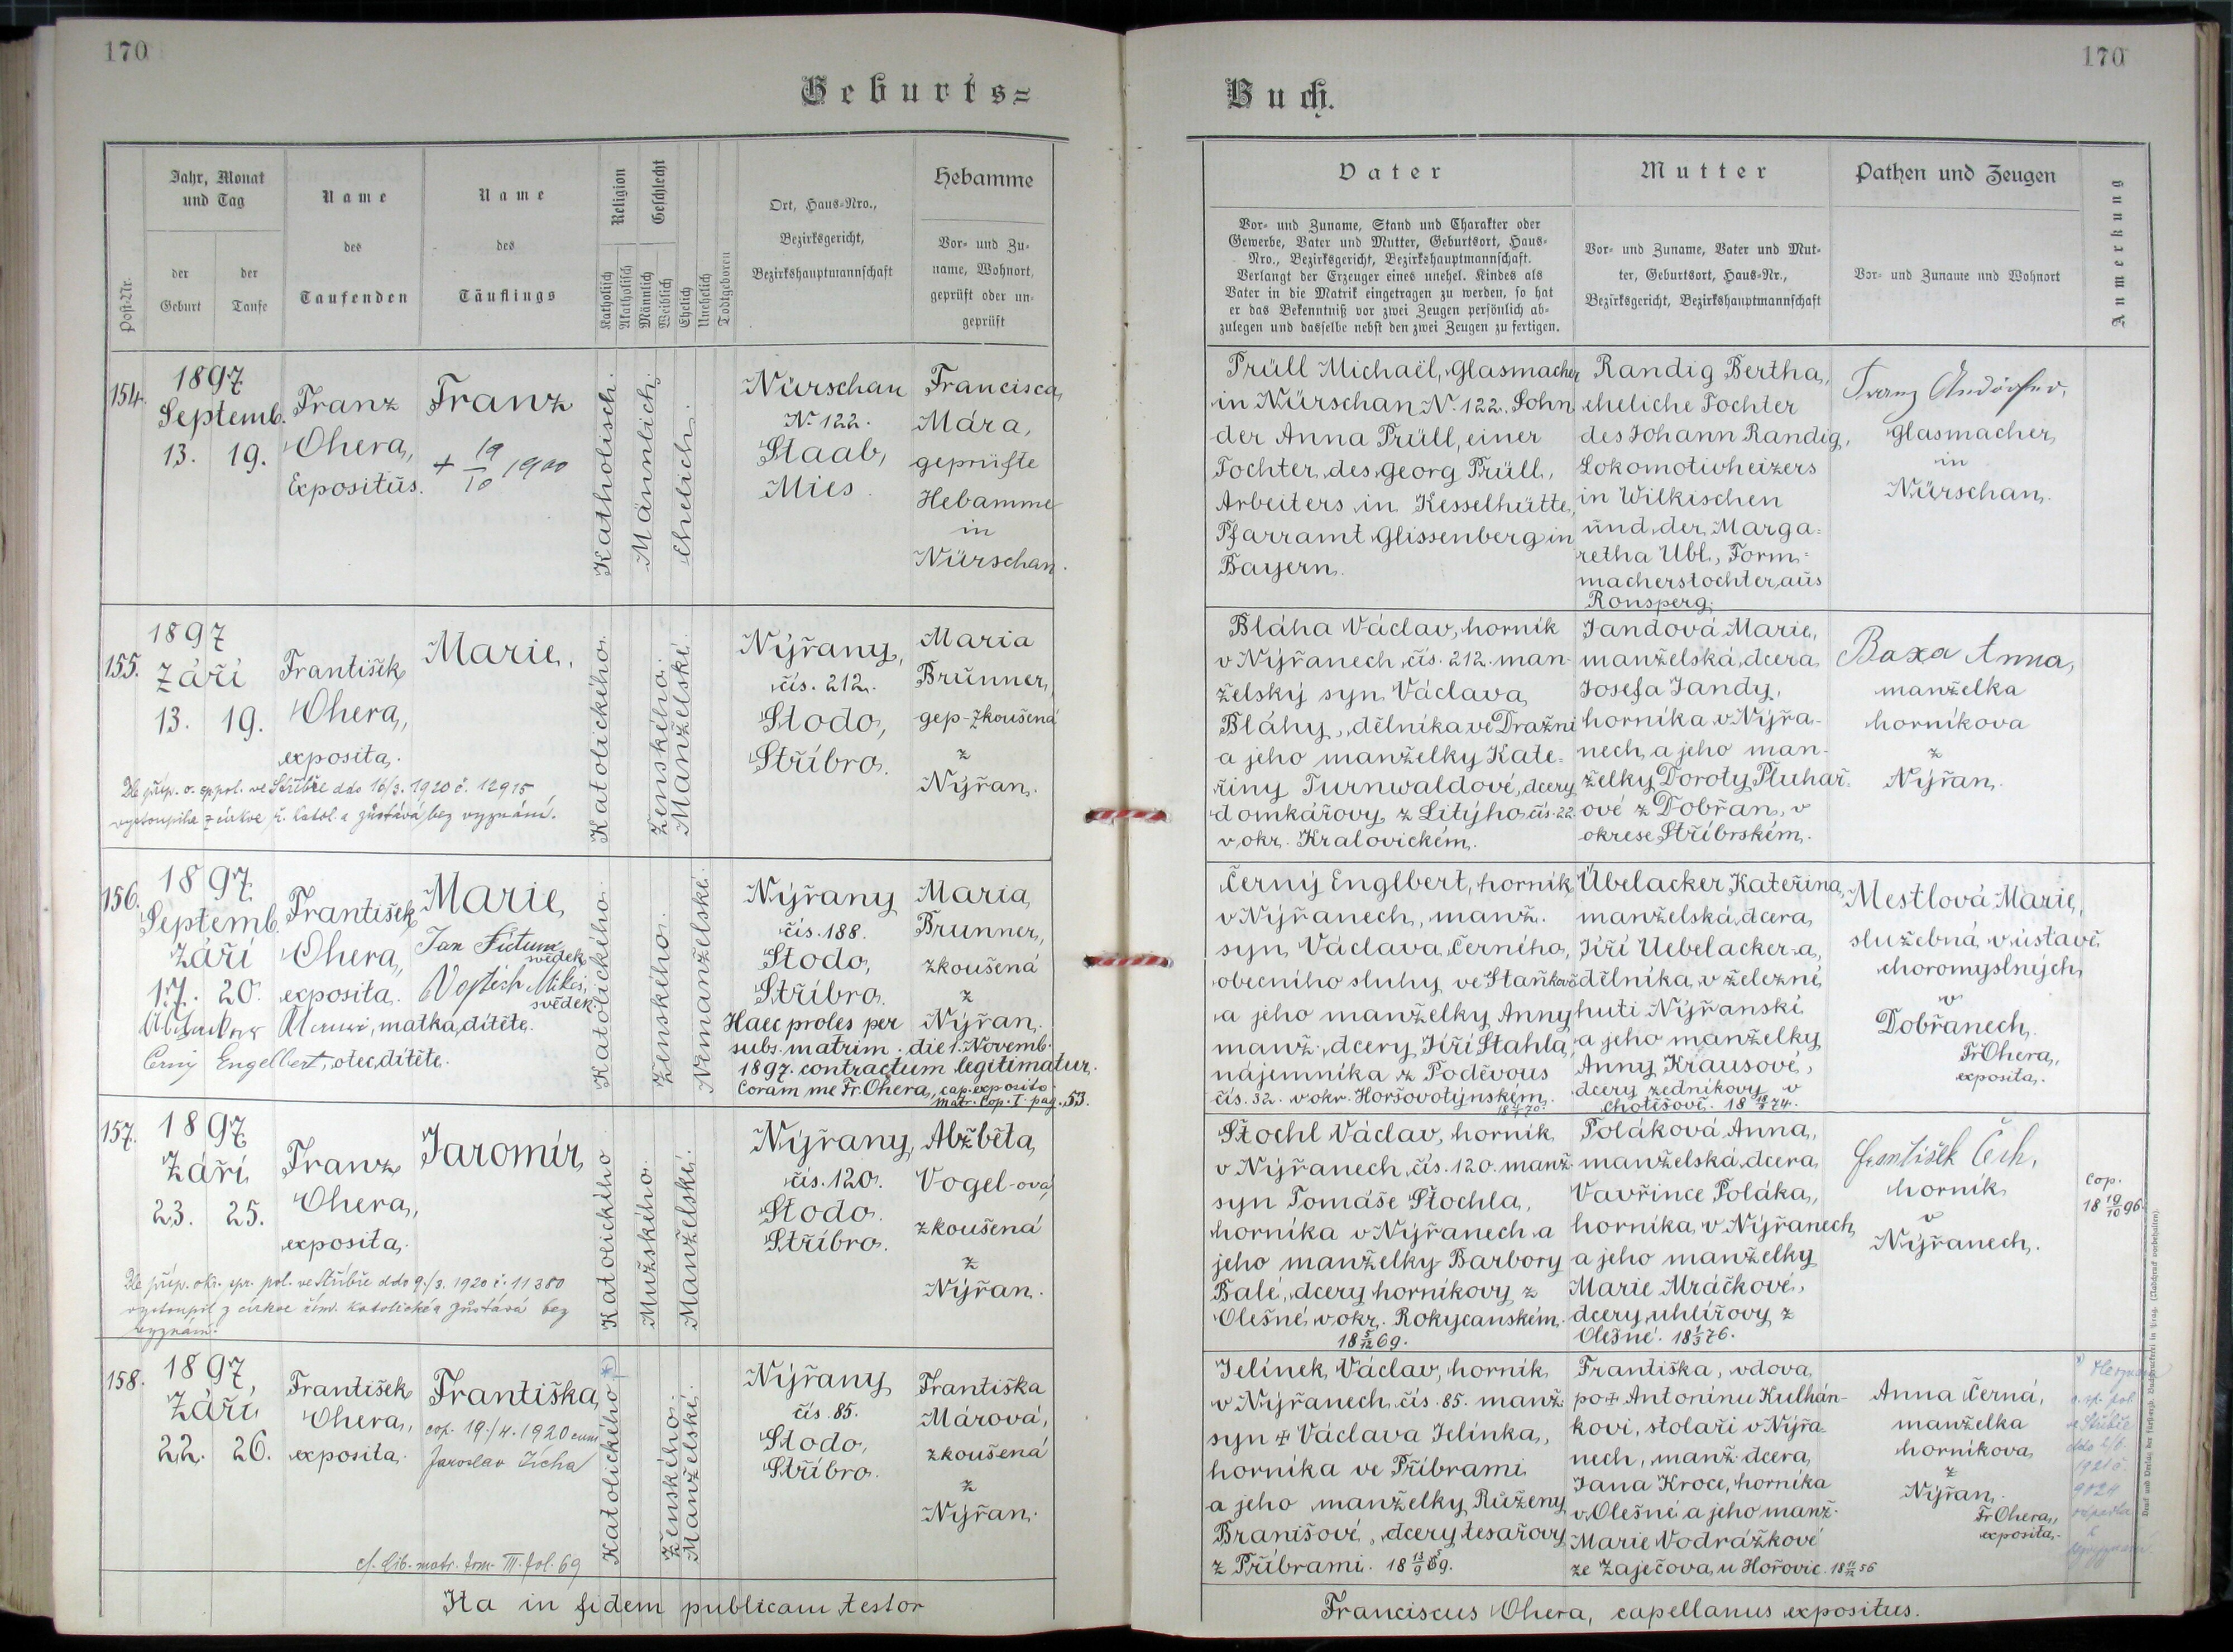 170
Geburts=
Post-Nr.
Jahr, Monat
und Tag
der
Geburt
der
Taufe
Name
des
Taufenden
Name
des
Täuflings
Religion
Katholisch
Akatholisch
Geschlecht
Männlich
Weiblich
Ehelich
Unehelich
Todtgeboren
Ort, Haus-Nro.,
Bezirksgericht,
Bezirkshauptmannschaft
Hebamme
Vor- und Zu-
name, Wohnort,
geprüft oder un-
geprüft
154.
1897
Septemb.
13. 19.
Franz
Ohera,
Expositus.
Franz
+ 19/10 1900
Katholisch.
Männlich.
Ehelich.
Nürschan
N. 122.
Staab,
Mies.
Francisca
Mára,
geprüfte
Hebamme
in
Nürschan.
155.
1897
Září
13. 19.
František
Ohera,
exposita.
Marie.
Katolického.
Ženského.
Manželské.
Nýřany,
čís. 212.
Stodo,
Stříbro.
Maria
Brunner,
gep-zkoušená
z
Nýřan.
Dle příp. o. sp. pol. ve Stříbře ddo 16/3. 1920 č. 12915
vystoupila z církve ř. katol. a zůstává bez vyznání.
156.
1897
Septemb.
Září
17. 20.
František
Ohera,
exposita.
Marie
Jan
svědek
Vojtěch
svědek.
matka dítěte.
Černý Engelbert, otec dítěte.
Katolického.
Ženského.
Nemanželské.
Nýřany
čís. 188.
Stodo,
Stříbro.
Maria
Brunner,
zkoušená
z
Nýřan.
Haec proles per
subs. matrim. die 1. Novemb.
1897. contractum legitimatur.
Coram me Fr. Ohera, cap. exposito.
Matr. Cop. I. pag. 53.
157.
1897
Září
23. 25.
Franz
Ohera,
exposita.
Jaromír
Katolického
Mužského.
Manželské.
Nýřany,
čís. 120.
Stodo.
Stříbro.
Alžběta
Vogel-ová
zkoušená
z
Nýřan.
Dle příp. okr. spr. pol. ve Stříbře ddo 9./3. 1920 č. 11380
vystoupil z církve řím. katolické a zůstává bez
vyznání.
158.
1897
Září
22. 26.
František
Ohera,
exposita.
Františka
cop. 19./4. 1920 cum
Jaroslav
Katolického *)
Ženského.
Manželské.
Nýřany
čís. 85.
Stodo,
Stříbro.
Františka
Márová,
zkoušená
z
Nýřan.
cf. lib. matr. tom. III. fol. 69
Ita in fidem publicam testor
170
Buch.
Vater
Vor- und Zuname, Stand und Charakter oder
Gewerbe, Vater und Mutter, Geburtsort, Haus-
Nro., Bezirksgericht, Bezirkshauptmannschaft.
Verlangt der Erzeuger eines unehel. Kindes als
Vater in die Matrik eingetragen zu werden, so hat
er das Bekenntniß vor zwei Zeugen persönlich ab-
zulegen und dasselbe nebst den zwei Zeugen zu fertigen.
Mutter
Vor- und Zuname, Vater und Mut-
ter, Geburtsort, Haus-Nr.,
Bezirksgericht, Bezirkshauptmannschaft
Pathen und Zeugen
Vor- und Zuname und Wohnort
Anmerkung
Prüll Michaël, Glasmacher
in Nürschan N. 122. Sohn
der Anna Prüll, einer
Tochter des Georg Prüll,
Arbeiters in Kesselhütte,
Pfarramt Glissenberg in
Bayern.
Randig Bertha,
eheliche Tochter
des Johann Randig,
Lokomotivheizers
in Wilkischen
und der Marga-
retha Übl, Form-
macherstochter aus
Ronsperg.
Franz
Glasmacher
in
Nürschan.
Bláha Václav, horník
v Nýřanech čís. 212. man-
želský syn Václava
Bláhy, dělníka ve Dražni
a jeho manželky Kate-
řiny Turnwaldové, dcery
domkářovy z Litýho čís. 22
v okr. Kralovickém.
Jandová Marie,
manželská dcera
Josefa Jandy,
horníka v Nýřa-
nech a jeho man-
želky Doroty Pluhař-
ové z Dobřan, v
okrese Stříbrském.
Baxa Anna,
manželka
horníkova
z
Nýřan.
Černý Englbert, horník
v Nýřanech, manž.
syn Václava Černího,
obecního sluhy ve Staňkově
a jeho manželky Anny
manž. dcery Jiří Stahla,
nájemníka z Poděvous
čís. 32. v okr. Horšovotýnském.
Übelacker Kateřina,
manželská dcera
Jiří Uebelacker-a,
dělníka v železné
huti Nýřanské
a jeho manželky
Anny Krausové,
dcery zedníkovy v
Chotěšově.
Mestlová Marie,
služebná v ústavě
choromyslných
v
Dobřanech.
Fr Ohera,
exposita.
Štochl Václav, horník
v Nýřanech čís. 120. manž.
syn Tomáše Štochla,
horníka v Nýřanech a
jeho manželky Barbory
Balé, dcery horníkovy z
Olešné v okr. Rokycanském.
18 5/12 69.
Poláková Anna,
manželská dcera
Vavřince Poláka,
horníka v Nýřanech
a jeho manželky
Marie Mráčkové,
dcery uhlířovy z
Olešné. 18 1/3 76.
František Čech,
horník
v
Nýřanech.
cop.
18 19/10 96.
Jelínek Václav, horník
v Nýřanech čís. 85. manž.
syn + Václava Jelínka,
horníka ve Příbrami
a jeho manželky Růženy
Branišové, dcery tesařovy
z Příbrami. 18 13/9 69.
Františka, vdova
po + Antonínu Kulhán-
kovi, stolaři v Nýřa-
nech, manž. dcera
Jana Kroce, horníka
v Olešné a jeho manž.
Marie Vodrážkové
ze Zaječova u Hořovic.
Anna Černá,
manželka
horníkova
z
Nýřan.
Fr Ohera,
exposita.
Franciscus Ohera, capellanus expositus.